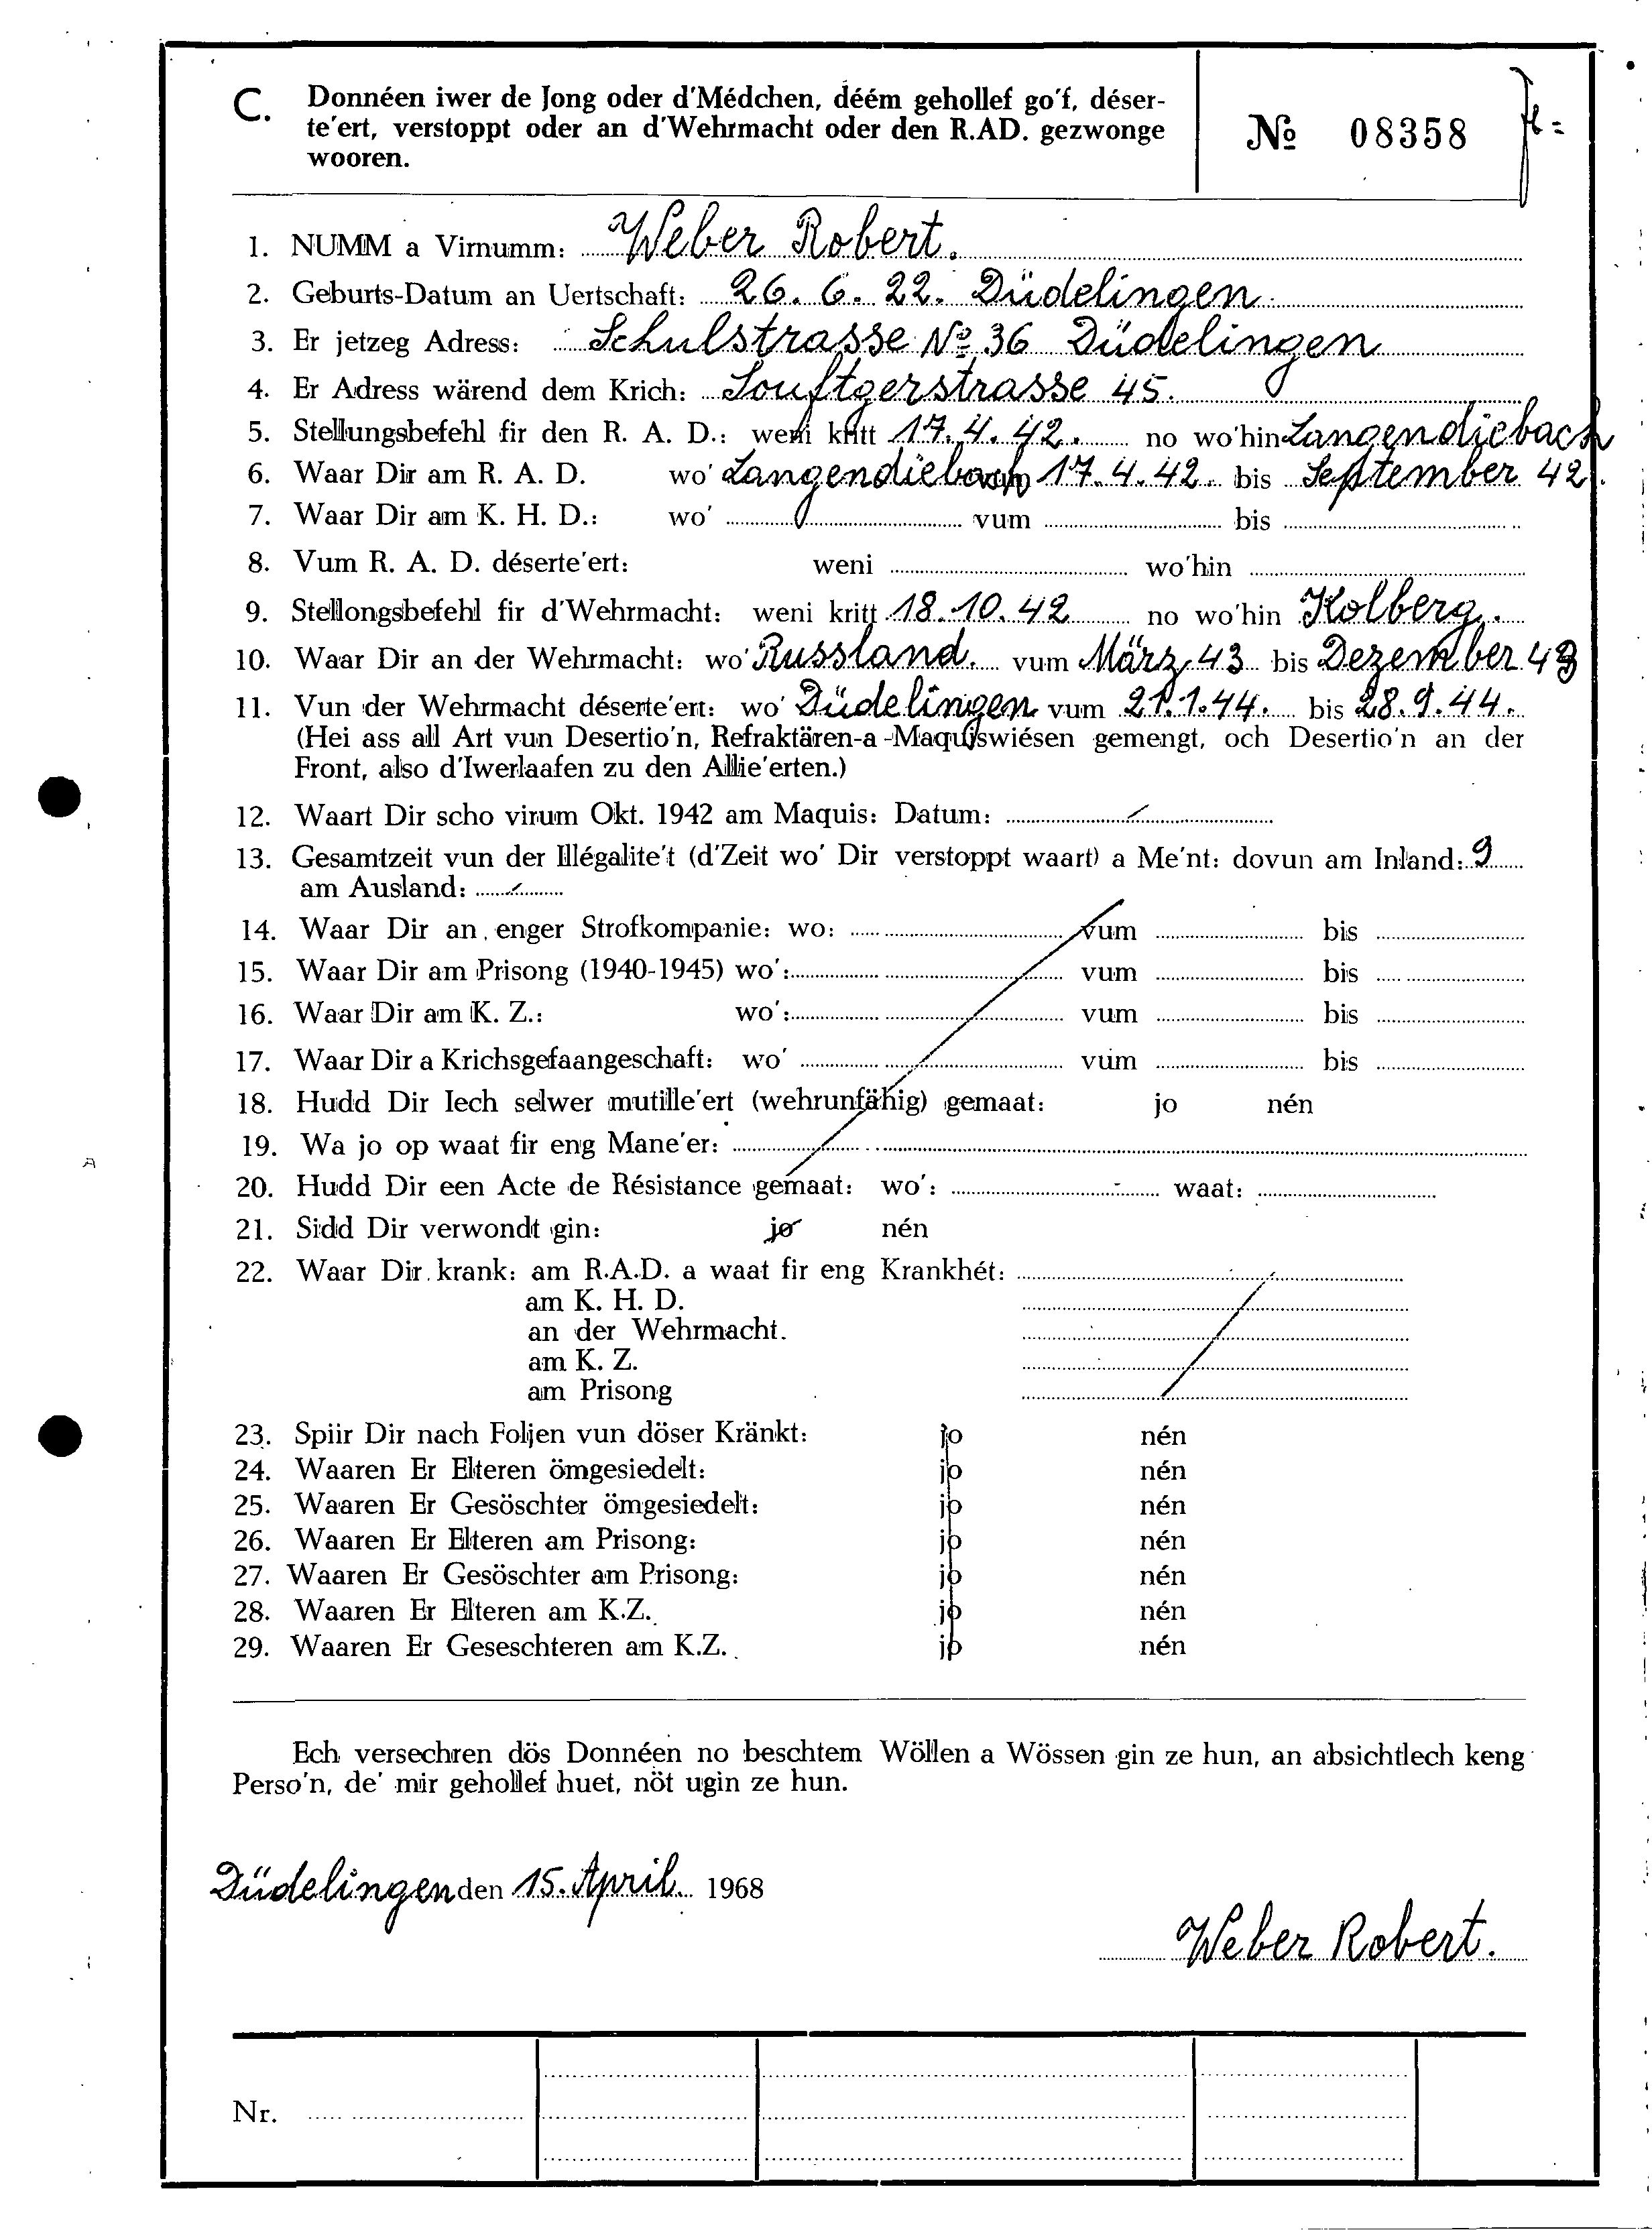 C. Donnéen iwer de Jong oder d'Médchen, déém gehollef go'f, déser-
te'ert, verstoppt oder an d'Wehrmacht oder den R.AD. gezwonge
wooren.
№ 08358
1. NUMM a Virnumm: Weber Robert.
2. Geburts-Datum an Uertschaft: 26. 6. 22. Düdelingen
3. Er jetzeg Adress: Schulstrasse № 36 Düdelingen
4. Er Adress wärend dem Krich: Souftgerstrasse 45.
5. Stellungsbefehl fir den R. A. D.: weni kritt 17. 4. 42. no wo'hin Langendiebach
6. Waar Dir am R. A. D. wo' Langendiebach vum 17. 4. 42. bis September 42.
7. Waar Dir am K. H. D.: wo' vum bis
8. Vum R. A. D. déserte'ert: weni wo'hin
9. Stellongsbefehl fir d'Wehrmacht: weni kritt 18. 10. 42 no wo'hin Kolberg.
10. Waar Dir an der Wehrmacht: wo' Russland. vum März 43 bis Dezember 43
11. Vun der Wehrmacht déserte'ert: wo' Düdelingen vum 21.1.44. bis 28.9.44.
(Hei ass all Art vun Desertio'n, Refraktären-a-Maquiswiésen gemengt, och Desertio'n an der
Front, also d'Iwerlaafen zu den Allie'erten.)
12. Waart Dir scho virum Okt. 1942 am Maquis: Datum:
13. Gesamtzeit vun der Illégalite't (d'Zeit wo' Dir verstoppt waart) a Me'nt: dovun am Inland: 9
am Ausland:
14. Waar Dir an enger Strofkompanie: wo: vum bis
15. Waar Dir am Prisong (1940-1945) wo': vum bis
16. Waar Dir am K. Z.: wo': vum bis
17. Waar Dir a Krichsgefaangeschaft: wo' vum bis
18. Hudd Dir Iech selwer mutille'ert (wehrunfähig) gemaat: jo nén
19. Wa jo op waat fir eng Mane'er:
20. Hudd Dir een Acte de Résistance gemaat: wo': waat:
21. Sidd Dir verwondt gin: jo nén
22. Waar Dir krank: am R.A.D. a waat fir eng Krankhét:
am K. H. D.
an der Wehrmacht.
am K. Z.
am Prisong
23. Spiir Dir nach Foljen vun döser Kränkt: jo nén
24. Waaren Er Elteren ömgesiedelt: jo nén
25. Waaren Er Gesöschter ömgesiedelt: jo nén
26. Waaren Er Elteren am Prisong: jo nén
27. Waaren Er Gesöschter am Prisong: jo nén
28. Waaren Er Elteren am K.Z. jo nén
29. Waaren Er Geseschteren am K.Z. jo nén
Ech versechren dös Donnéen no beschtem Wöllen a Wössen gin ze hun, an absichtlech keng
Perso'n, de' mir gehollef huet, nöt ugin ze hun.
Düdelingen den 15. April. 1968
Weber Robert.
Nr.